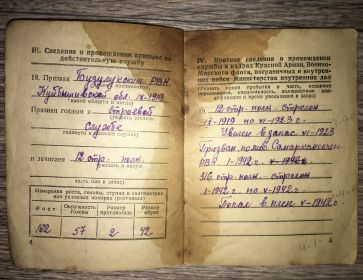 III. Сведения о прохождении призыва на
действительную службу
18. Призван Бузулукским РВК
Куйбышевской обл. V-1919
(какой области и когда)
Признан годным к строевой
службе
и зачислен 12 стр. полк.
(часть или в запас)
Измерения роста, головы, ступни в сантиметрах
Рост
Окружность головы
Размер противогаза
Размер обуви
162 57 2 42
4
IV. Краткие сведения о прохождении
службы в кадрах Красной Армии, Военно-
Морского флота, пограничных и внутрен-
них войск Министерства внутренних дел
19 12 стр. полк - стрелок
V-1919 по VI-1923 г.
Уволен в запас VI-1923
Призван, повт. Самаркандским
РВК 1-1942 г.
316 стр. полк - стрелок
1-1942 г. по V-1942 г.
Попал в плен V-1942 г.
5